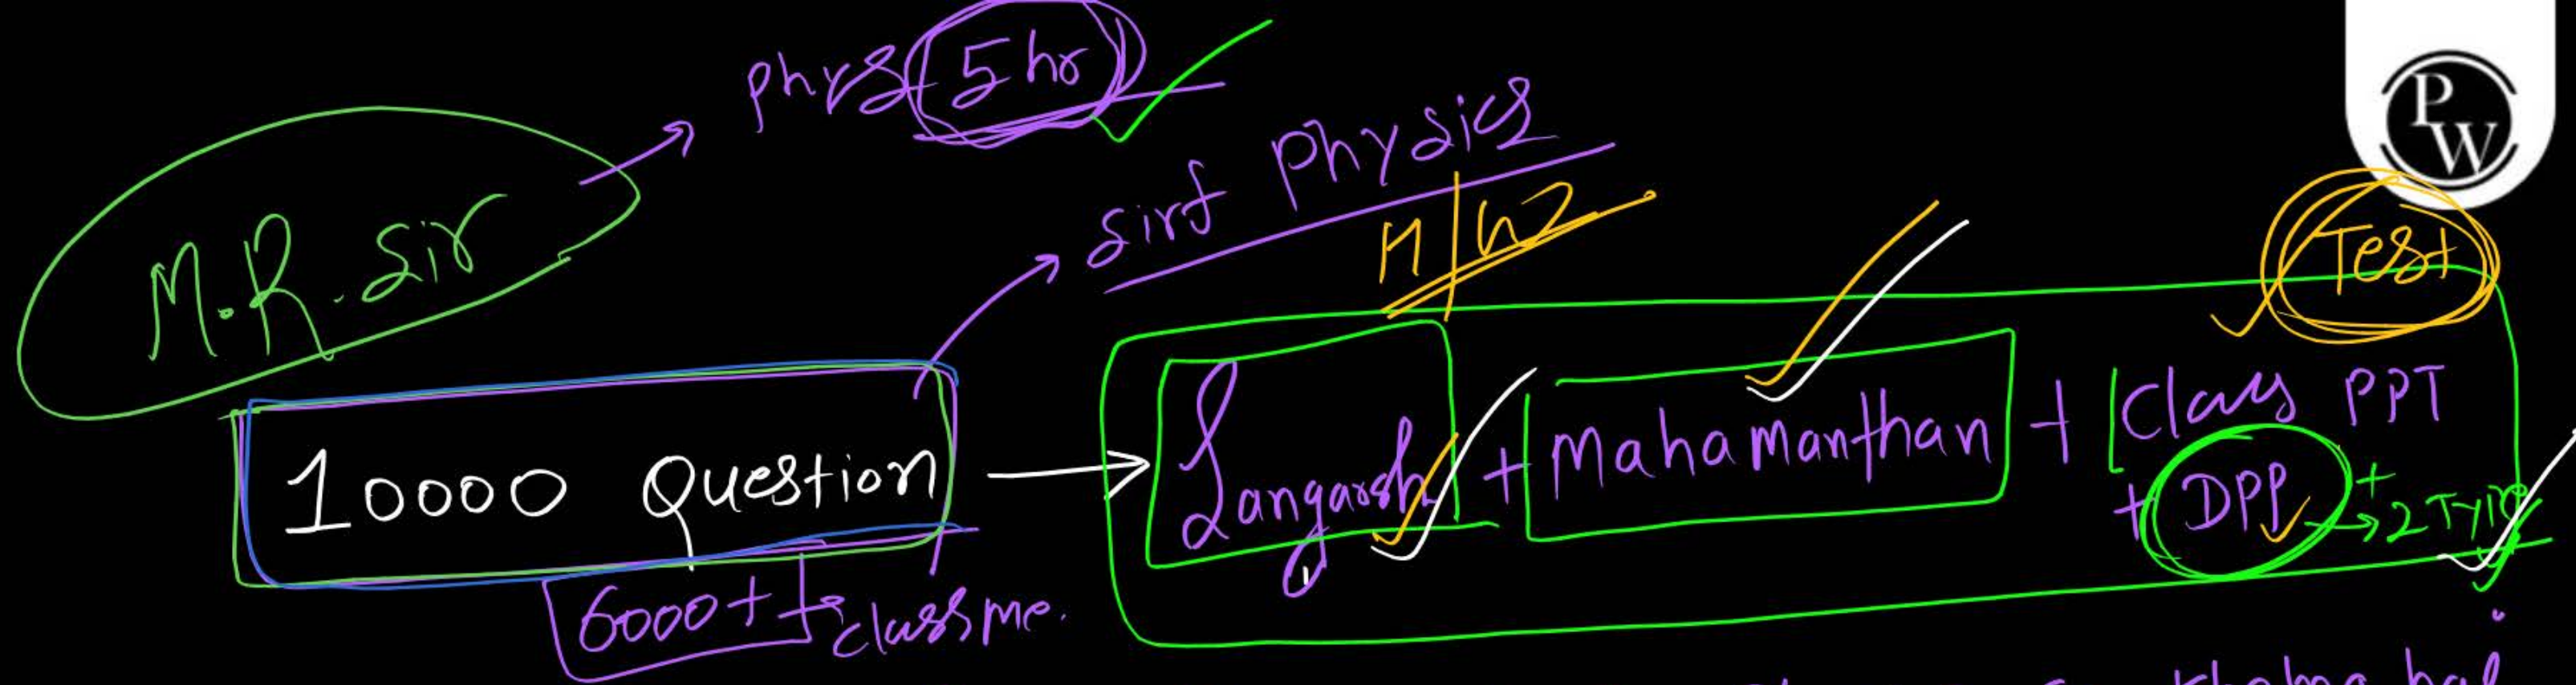 phys 5 hr
PW
sirf Physics
M.R. Sir
Test
10000 Question → Sangarsh + Mahamanthan + Class PPT
+ DPP + → 2 Type
6000+ → class me.